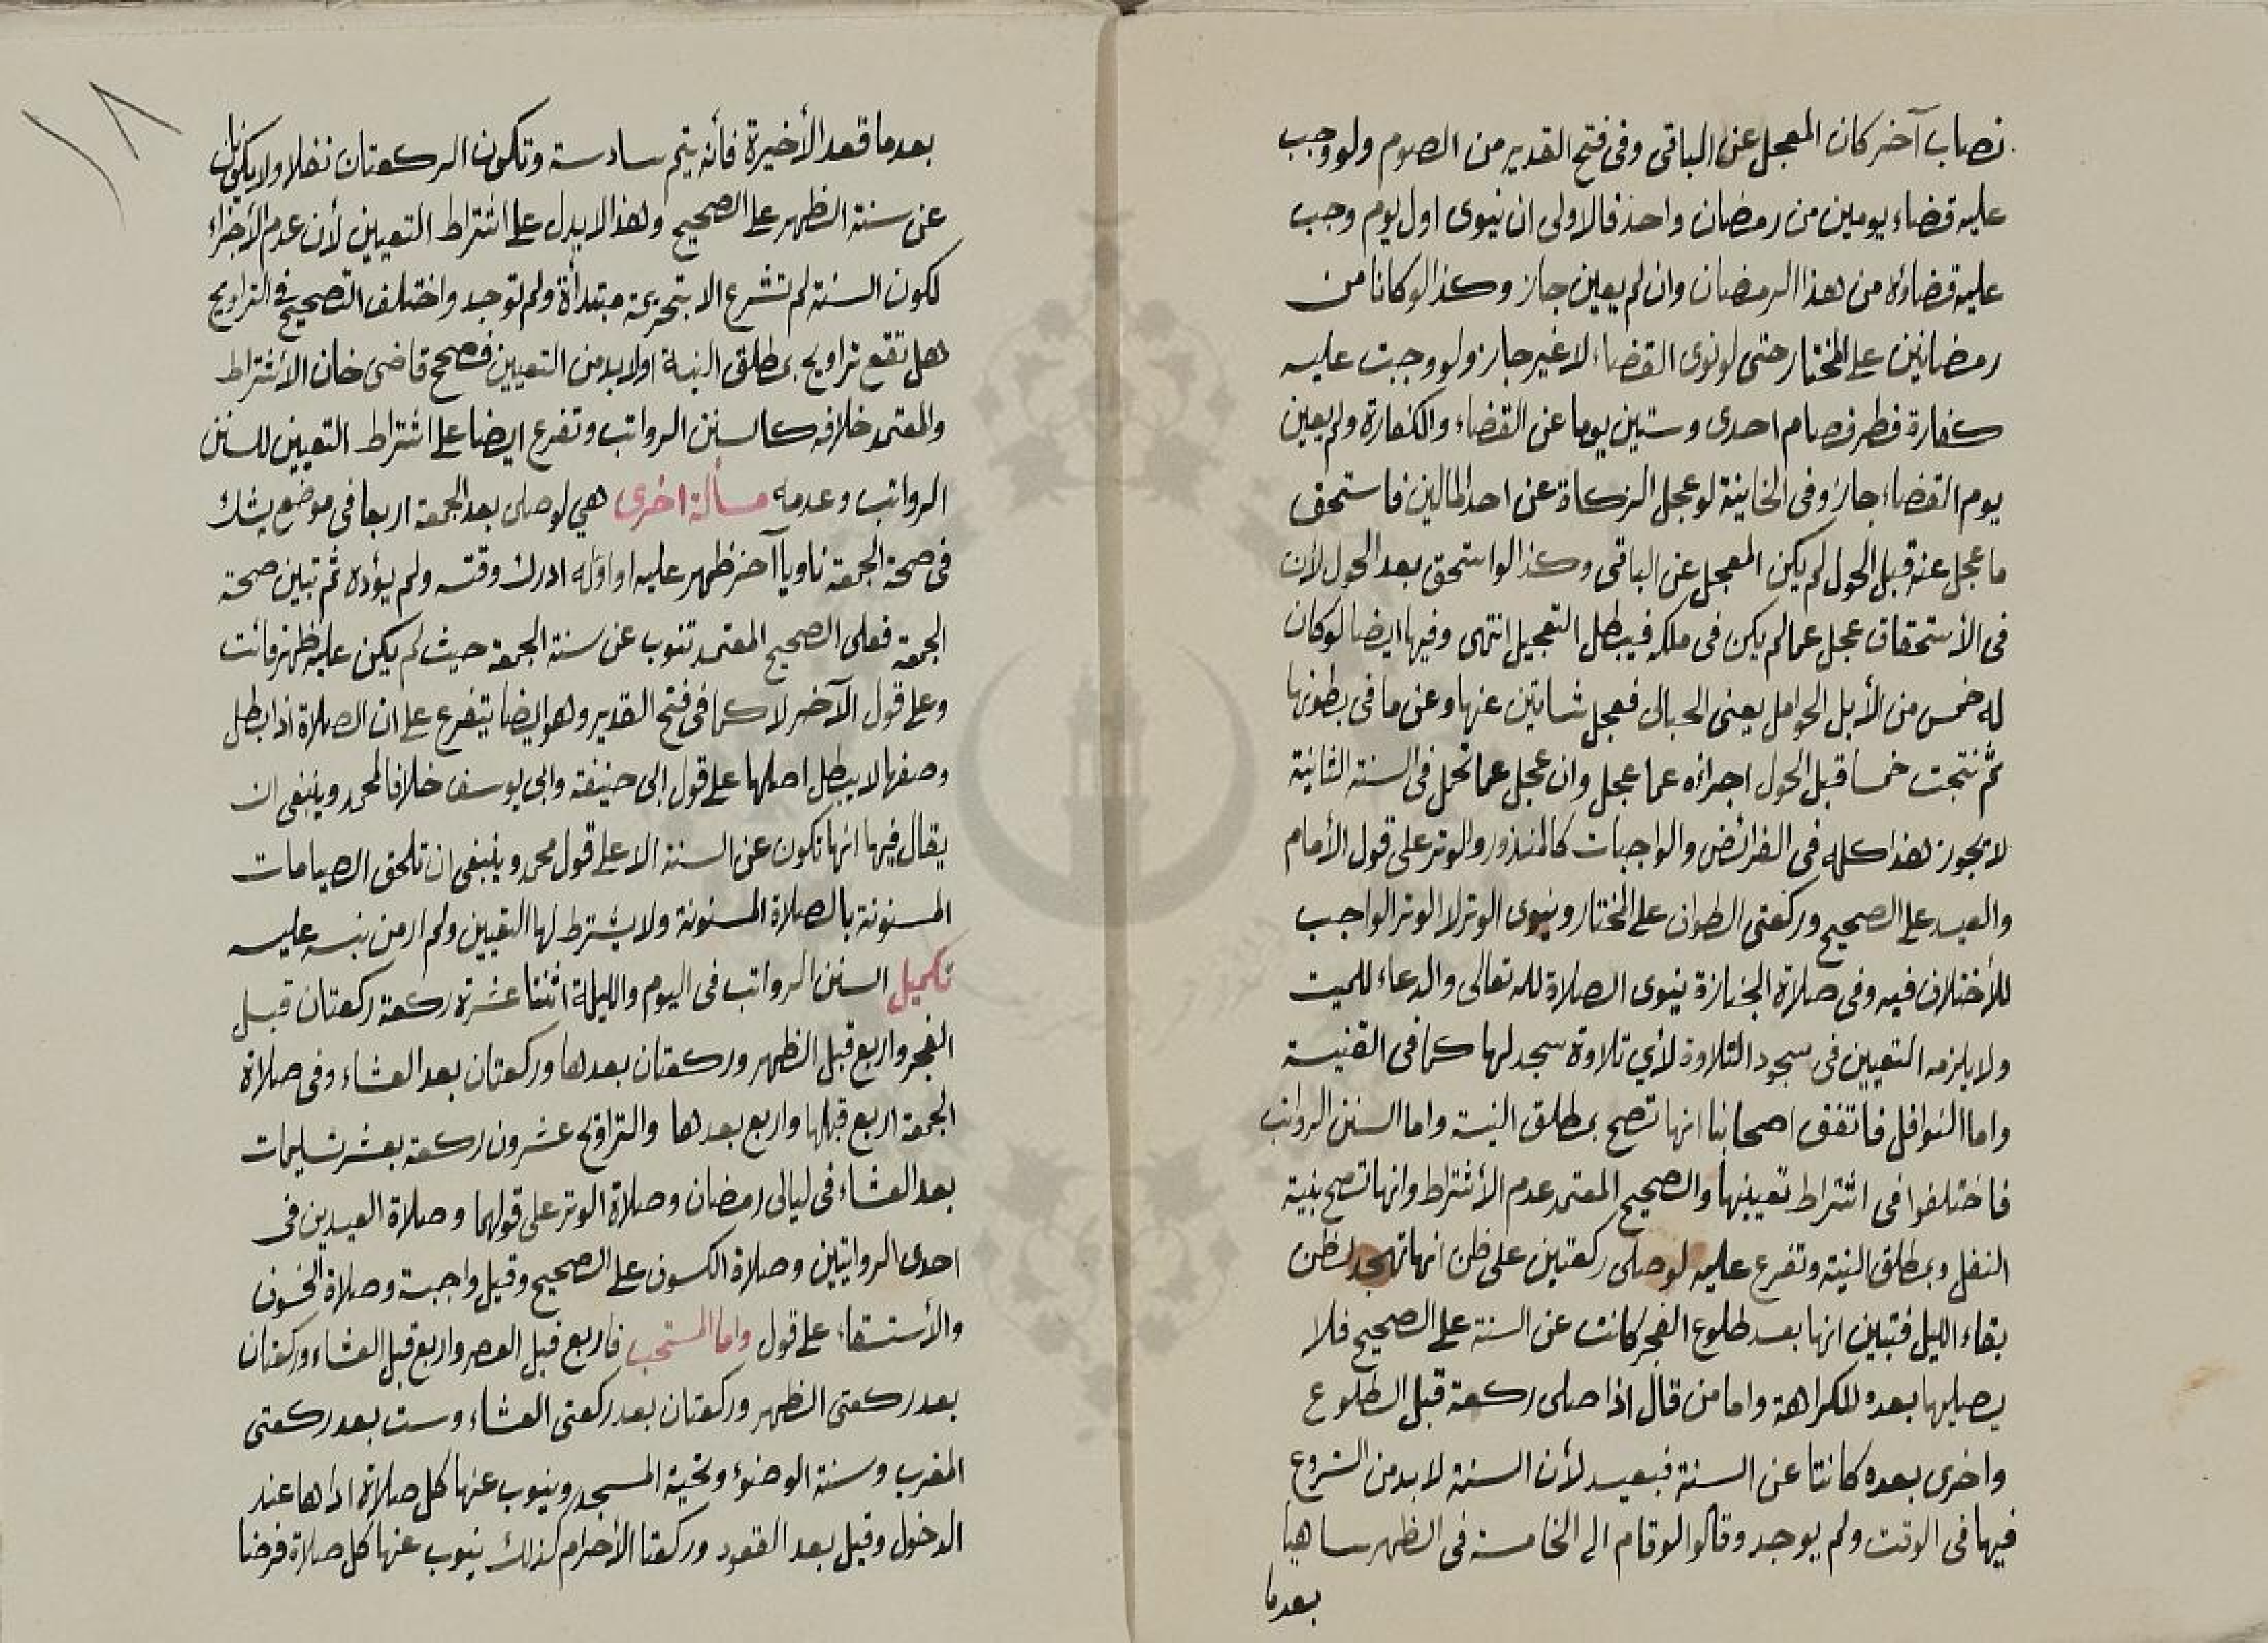 نصاب آخر كان المعجل عن الباقى وفى فتح القدير من الصوم ولو وجب
عليه قضاء يومين من رمضان واحد فالاولى ان ينوى اول يوم وجب
عليه قضاؤه من هذا الرمضان وان لم يعين جاز وكذا لو كانا من
رمضانين على المختار حتى لو نوى القضاء لا غير جاز ولو وجبت عليه
كفارة فطر فصام احدى وستين يوما عن القضاء والكفارة ولم يعين
يوم القضاء جاز وفى الخانية لو عجل الزكاة عن احد المالين فاستحق
ما عجل عنه قبل الحول لم يكن المعجل عن الباقى وكذا لو استحق بعد الحول لأن
فى الأستحقاق عجل عما لم يكن فى ملكه فيبطل التعجيل انتهى وفيها ايضا لو كان
له خمس من الأبل الحوامل يعنى الحبالى فعجل شاتين عنها وعن ما فى بطونها
ثم نتجت خمسا قبل الحول اجزاءه عما عجل وان عجل عما تحمل فى السنة الثانية
لا يجوز هذا كله فى الفرائض والواجبات كالمنذور والوتر على قول الأمام
والعيد على الصحيح وركعتى الطواف على المختار وينوى الوتر لا الوتر الواجب
للأختلاف فيه وفى صلاة الجنازة ينوى الصلاة لله تعالى والدعاء للميت
ولا يلزمه التعيين فى سجود التلاوة لأي تلاوة سجد لها كما فى القنية
واما النوافل فاتفق اصحابنا انها تصح بمطلق النية واما السنن الرواتب
فاختلفوا فى اشتراط تعيينها والصحيح المعتمد عدم الأشتراط وانها تصح بنية
النفل وبمطلق النية وتفرع عليه لو صلى ركعتين على ظن انها تهجد لظن
بقاء الليل فتبين انها بعد طلوع الفجر كانت عن السنة على الصحيح فلا
يصليها بعده للكراهة واما من قال اذا صلى ركعة قبل الطلوع
واخرى بعده كانتا عن السنة فبعيد لأن السنة لا بد من الشروع
فيها فى الوقت ولم يوجد وقالوا لو قام الى الخامسة فى الظهر ساهيا
بعدما
١٨
بعدما قعد الأخيرة فأنه يتم سادسة وتكون الركعتان نفلا ولا يكونان
عن سنة الظهر على الصحيح وهذا لا يدل على اشتراط التعيين لأن عدم الأجزاء
لكون السنة لم تشرع الا بتحريمة مبتدأة ولم توجد واختلف التصحيح فى التراويح
هل تقع تراويح بمطلق النية او لا بد من التعيين فصحح قاضى خان الأشتراط
والمعتمد خلافه كالسنن الرواتب وتفرع ايضا على اشتراط التعيين للسنن
الرواتب وعدمه مسألة اخرى هي لو صلى بعد الجمعة اربعا فى موضع يشك
فى صحة الجمعة ناويا آخر ظهر عليه او اوله ادرك وقته ولم يؤده ثم تبين صحة
الجمعة فعلى الصحيح المعتمد تنوب عن سنة الجمعة حيث لم يكن عليه ظهر فائت
وعلى قول الآخر لا كما فى فتح القدير وهو ايضا يتفرع على ان الصلاة اذا بطل
وصفها لا يبطل اصلها على قول ابى حنيفة وابى يوسف خلافا لمحمد وينبغى ان
يقال فيها انها تكون عن السنة الا على قول محمد وينبغى ان تلحق الصيامات
المسنونة بالصلاة المسنونة ولا يشترط لها التعيين ولم ار من نبه عليه
تكميل السنن الرواتب فى اليوم والليلة اثنتا عشرة ركعة ركعتان قبل
الفجر واربع قبل الظهر وركعتان بعدها وركعتان بعد العشاء وفى صلاة
الجمعة اربع قبلها واربع بعدها والتراويح عشرون ركعة بعشر تسليمات
بعد العشاء فى ليالى رمضان وصلاة الوتر على قولهما وصلاة العيدين فى
احدى الروايتين وصلاة الكسوف على الصحيح وقيل واجبة وصلاة الخسوف
والأستسقاء على قول واما المستحب فاربع قبل العصر واربع قبل العشاء وركعتان
بعد ركعتى الظهر وركعتان بعد ركعتى العشاء وست بعد ركعتى
المغرب وسنة الوضوء وتحية المسجد وينوب عنها كل صلاة اداها عند
الدخول وقيل بعد القعود وركعتا الأحرام كذلك ينوب عنها كل صلاة فرضا